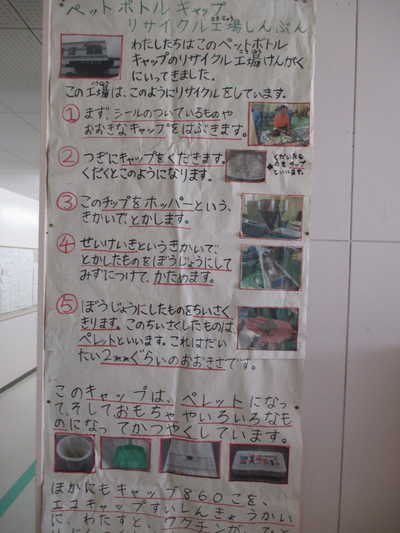 ペットボトルキャップ
リサイクル工場しんぶん
こうじょう
わたしたちはこのペットボトル
キャップのリサイクル工場けんがく
にいってきました。
この工場は、このようにリサイクルをしています。
① まず、シールのついているものや
おおきなキャップをはぶきます。
② つぎにキャップをくだきます。
くだくとこのようになります。
くだいたも
のをチップ
といいます。
③ このチップをホッパーという、
きかいで、とかします。
④ せいけいきというきかいで、
とかしたものをぼうじょうにして
みずにつけて、かためます。
⑤ ぼうじょうにしたものをちいさく
きります。このちいさくしたものは、
ペレットといいます。これはだい
たい2mmぐらいのおおきさです。
このキャップは、ペレットになっ
て、そしておもちゃやいろいろなも
のになってかつやくしています。
ほかにもキャップ860こを、
エコキャップすいしんきょうかい
に、わたすと、ワクチンが、ひと